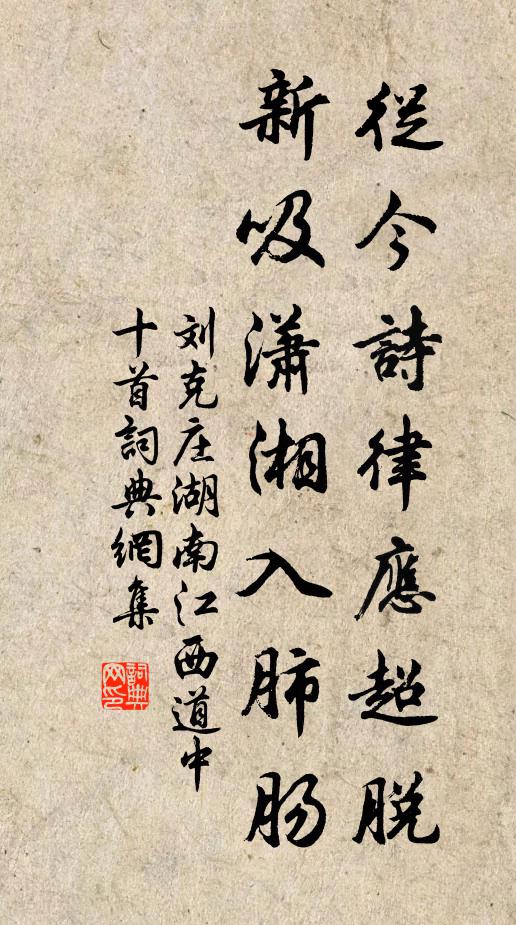 從今詩律應超脫
新吸瀟湘入肺肠
刘克庄湖南江西道中
十首詞典網集
詞典
网印